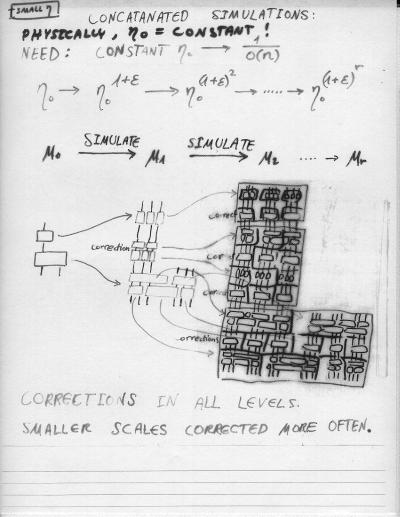 SMALL η
CONCATANATED SIMULATIONS:
PHYSICALLY, η₀ = CONSTANT!
NEED: CONSTANT η₀ → 1/O(n)
η₀ → η₀^(1+ε) → η₀^(1+ε)² → ..... → η₀^(1+ε)^r
M₀ SIMULATE → M₁ SIMULATE → M₂ .... → Mr
correct
correction
correct
correct
corrections
CORRECTIONS IN ALL LEVELS.
SMALLER SCALES CORRECTED MORE OFTEN.